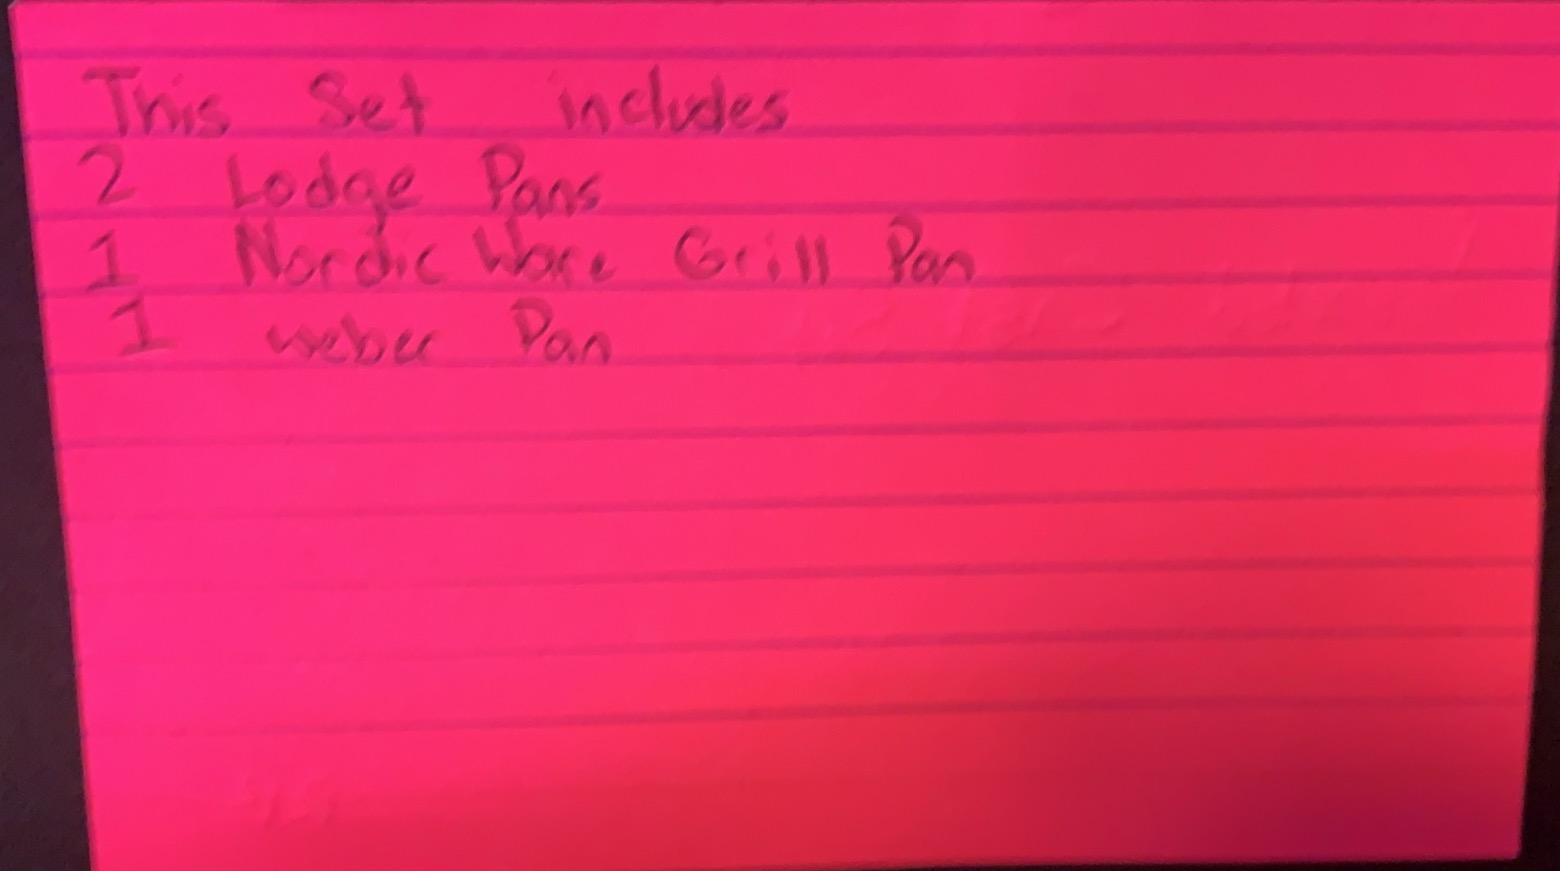 This Set includes
2 Lodge Pans
1 Nordic Ware Grill Pan
1 weber Pan